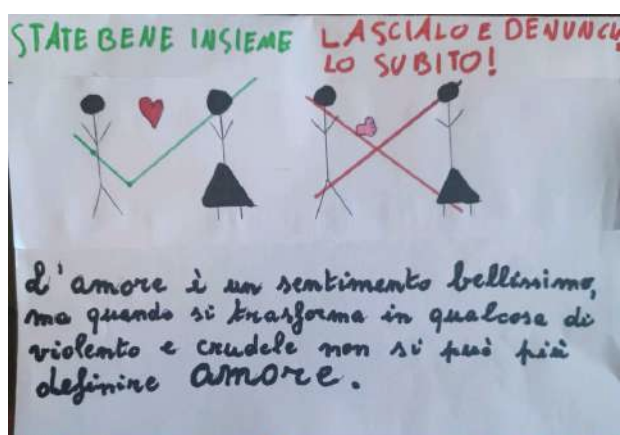 STATE BENE INSIEME
LASCIALO E DENUNCIA
LO SUBITO!
L'amore è un sentimento bellissimo,
ma quando si trasforma in qualcosa di
violento e crudele non si può più
definire amore.